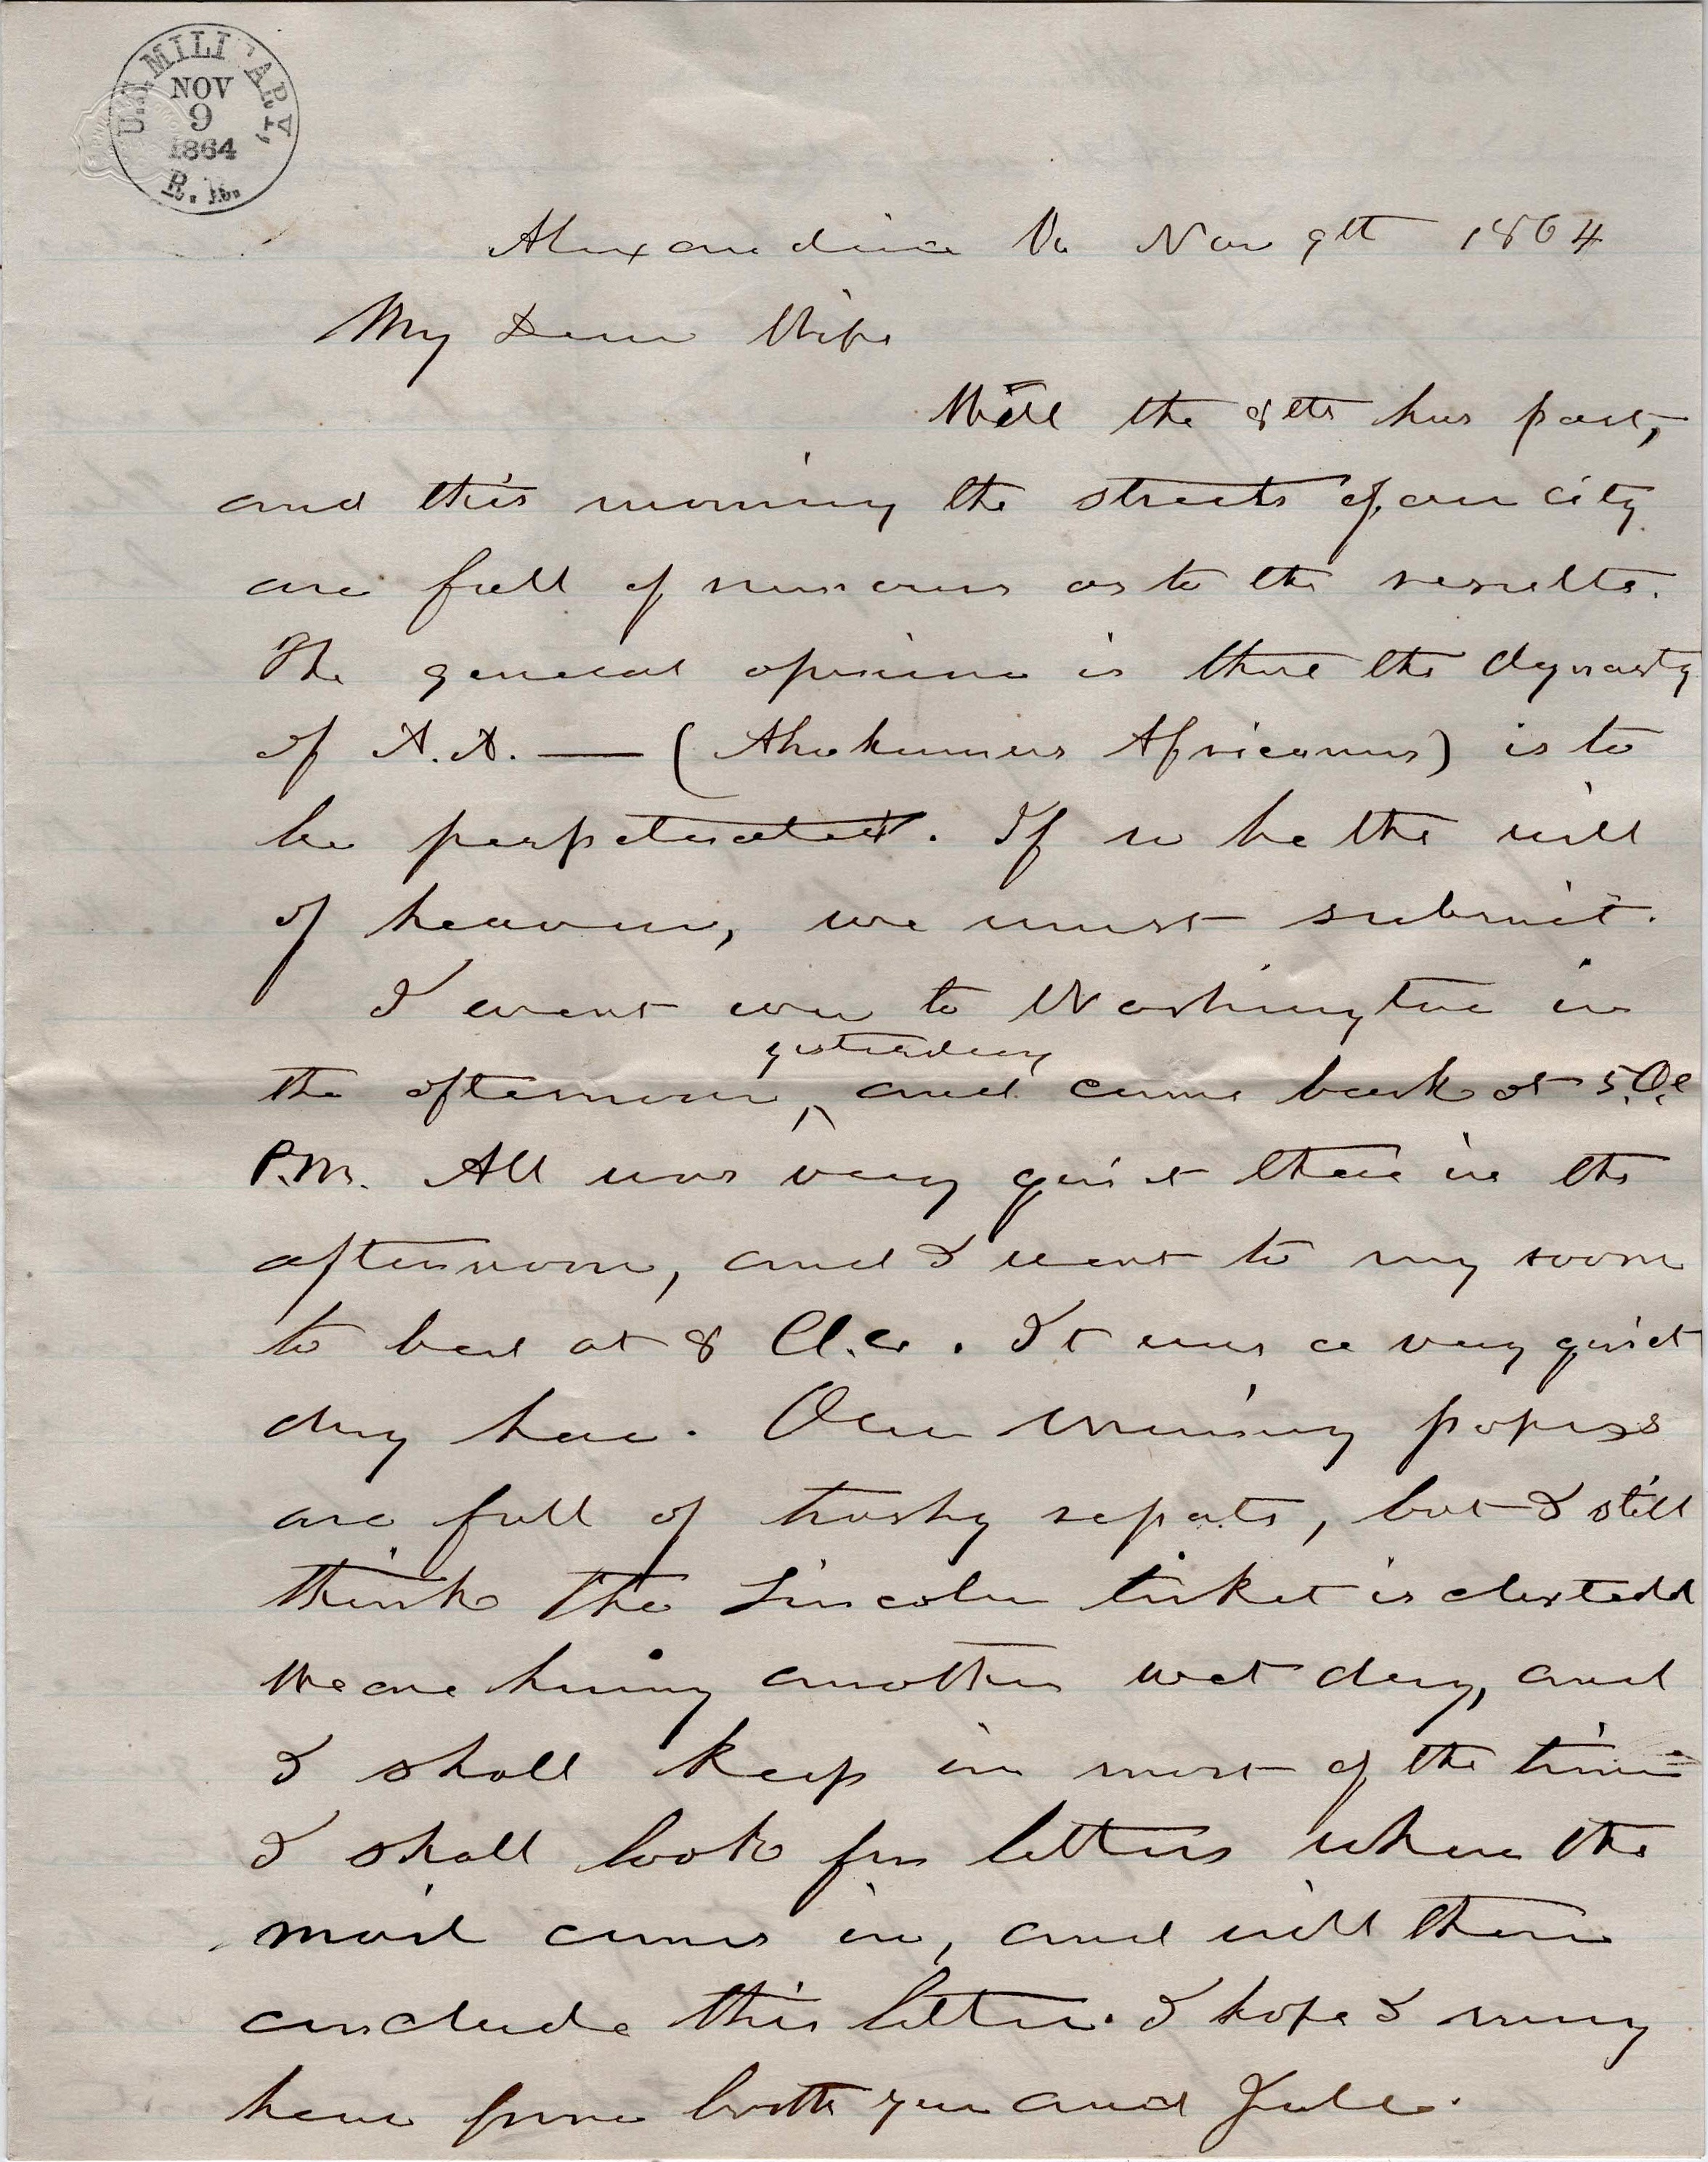 U.S. MILITARY,
NOV
9
1864
R. R.
Alexandria Va Nov 9th 1864
My Dear Wife
Well the 8th has past,
and this morning the streets of our city
are full of rumours as to the results.
The general opinion is that the dynasty
of A.A. — ( Abrahamus Africanus) is to
be perpetuated. If so be the will
of heaven, we must submit.
I went over to Washington in
yesterday
the afternoon, and came back at 5.Oc
P.M. All was very quiet there in the
afternoon, and I went to my room
to bed at 8 O.c. It was a very quiet
day here. Our morning papers
are full of trashy reports, but I still
think the Lincoln ticket is elected
We are having another wet day, and
I shall keep in most of the time
I shall look for letters when the
mail comes in, and will then
conclude this letter. I hope I may
hear from both you and Jule.